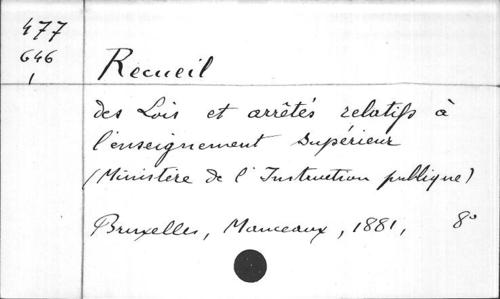 477
646
1
Recueil
des Lois et arrêtés relatifs à
l'enseignement supérieur
(Ministère de l'Instruction publique)
Bruxelles, Manceaux, 1881, 8º